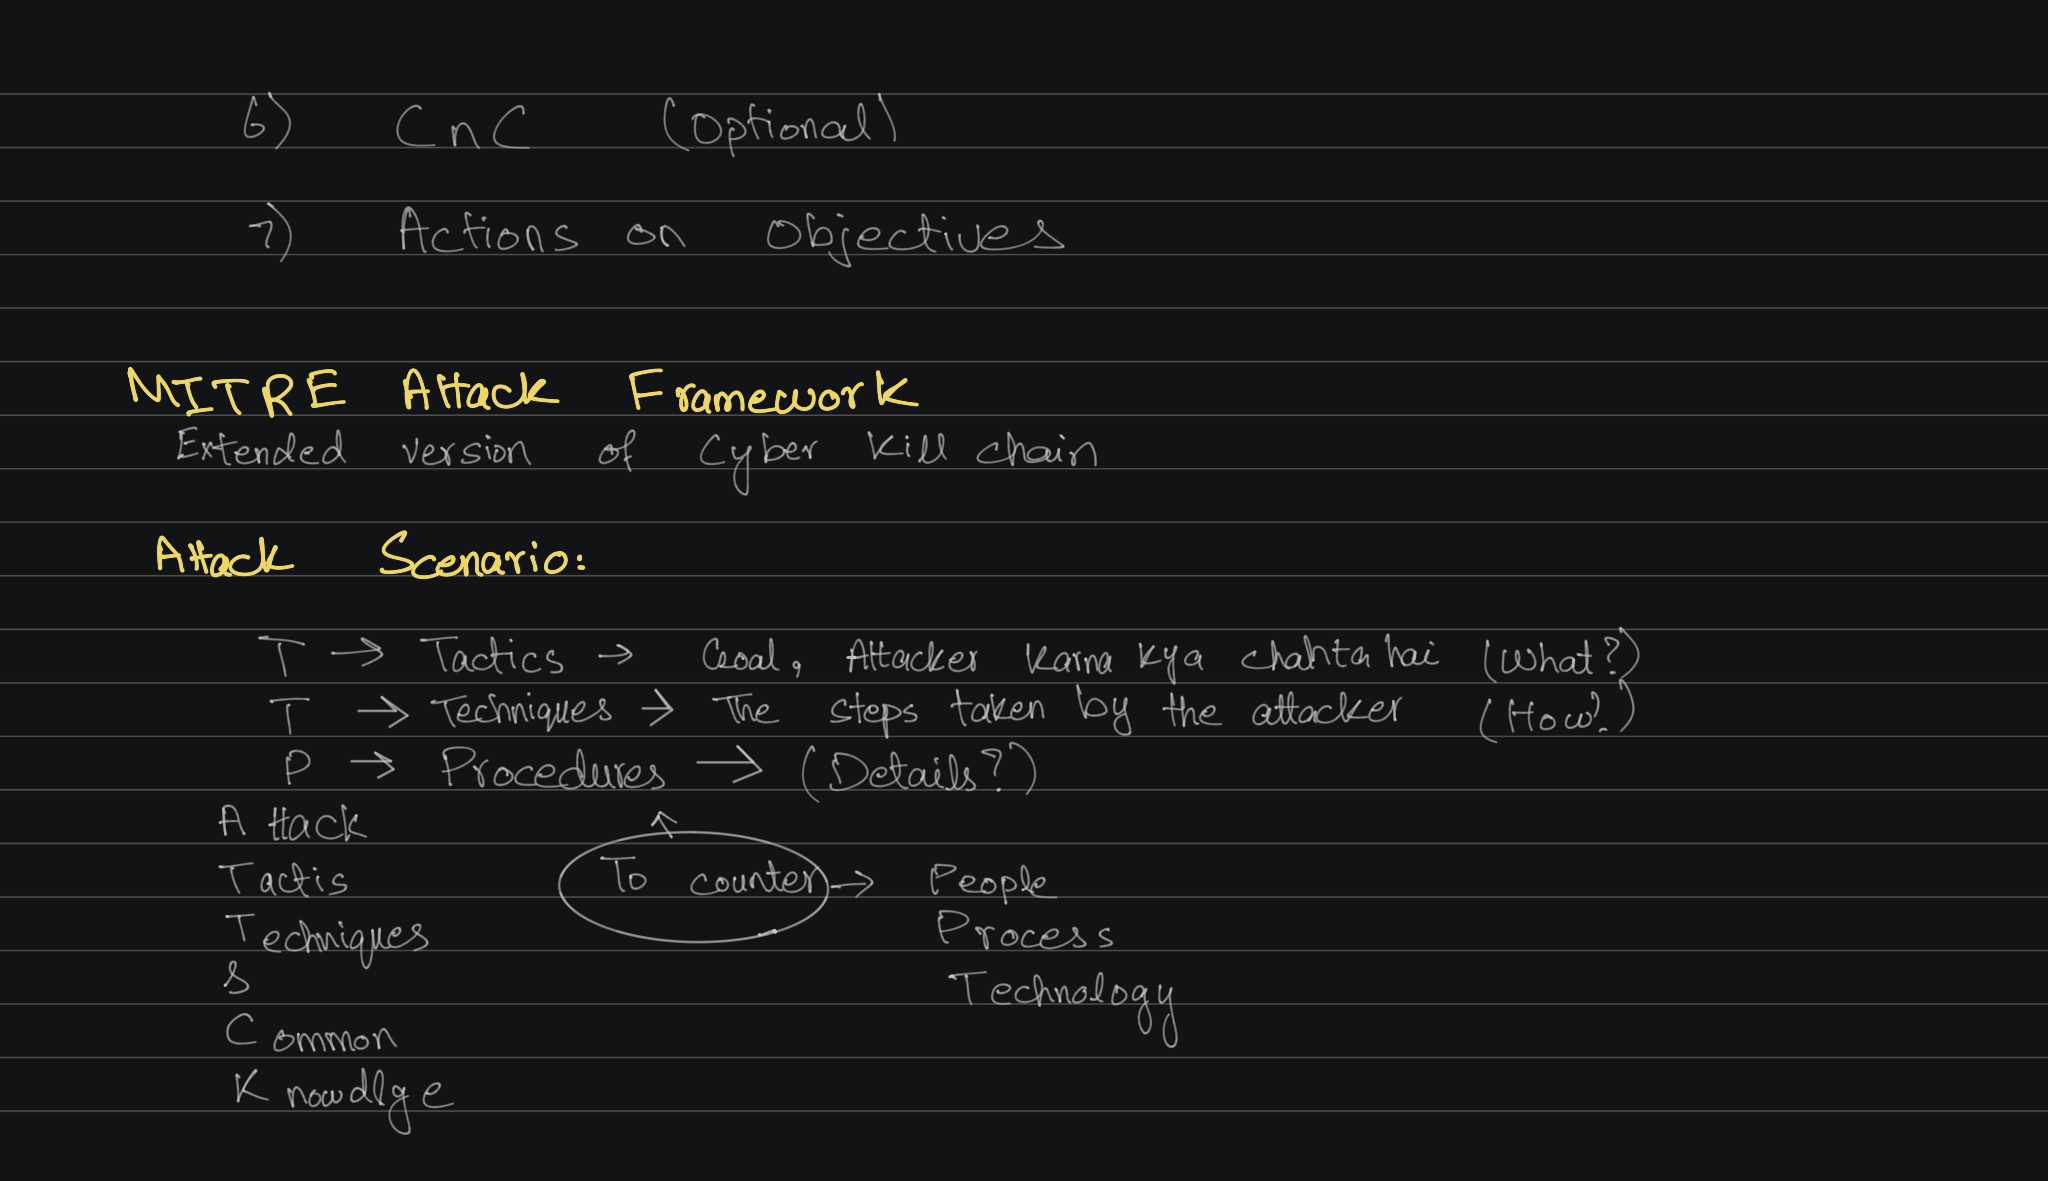 6) CnC (Optional)
7) Actions on Objectives
MITRE Attack Framework
Extended version of Cyber Kill chain
Attack Scenario:
T → Tactics → Goal, Attacker Karna Kya chahta hai (What?)
T → Techniques → The steps taken by the attacker (How?)
P → Procedures → (Details?)
A ttack
Tactis
Techniques
&
Common
Knowdlge
↑
To counter → People
Process
Technology